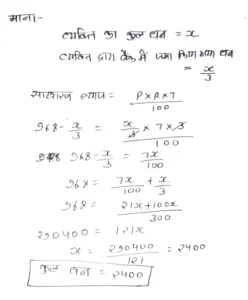 माना:-
व्यक्ति का कुल धन = x
व्यक्ति द्वारा बैंक में जमा किया गया धन = x/3
साधारण ब्याज = P×R×T/100
968 - x/3 = x/3 × 7 × 3 / 100
968 - x/3 = 7x/100
968 = 7x/100 + x/3
968 = 21x+100x/300
290400 = 121x
x = 290400/121 = 2400
कुल धन = 2400